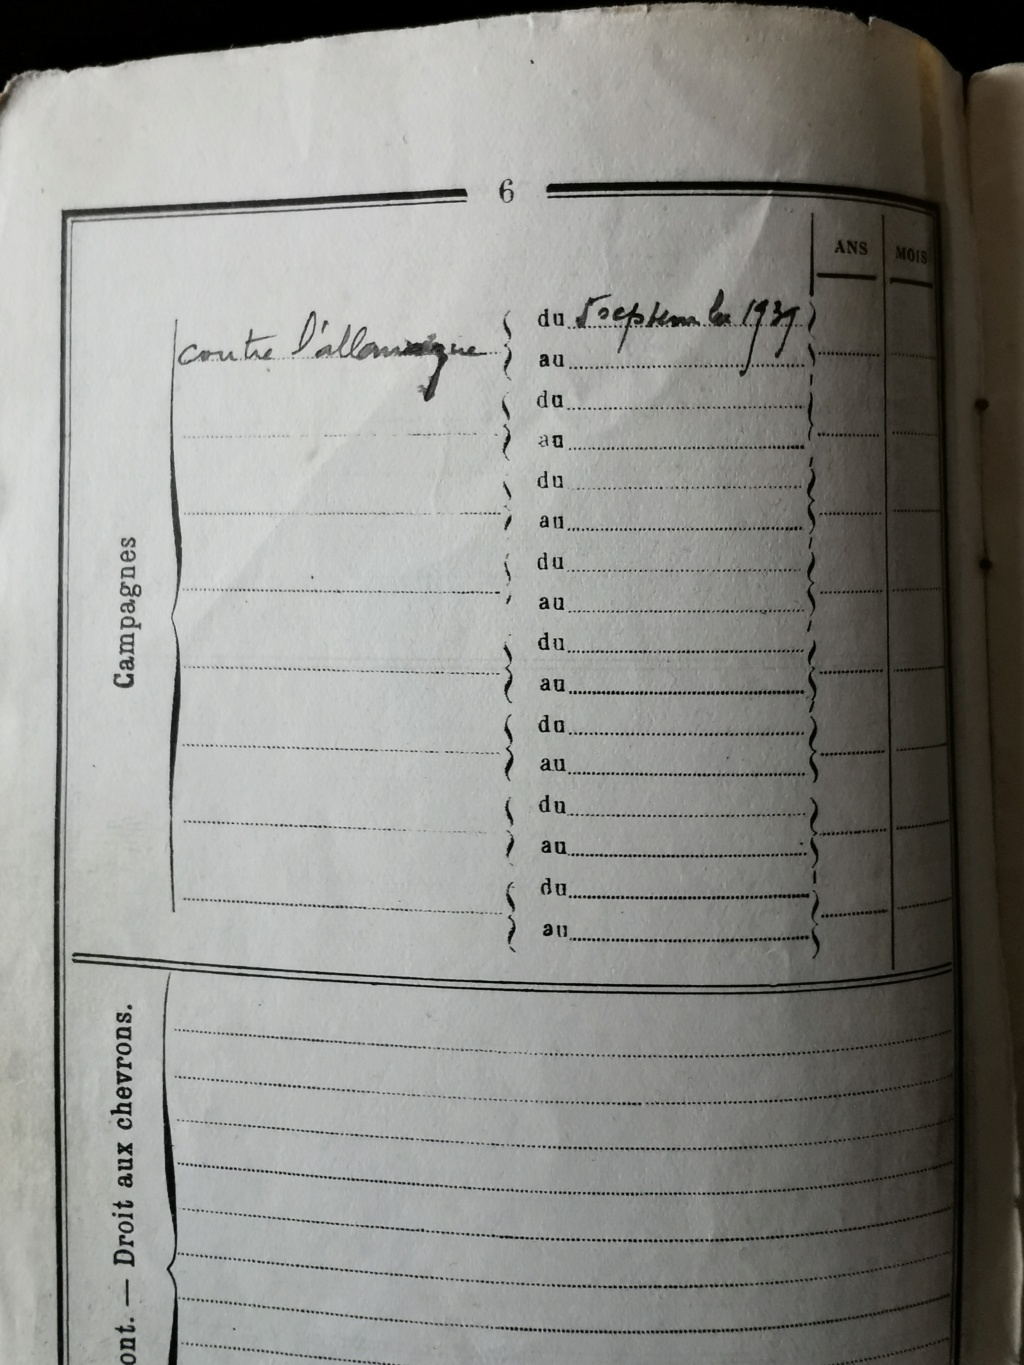 6
ANS MOIS
Campagnes
du 5 septembre 1939
contre l'allemagne
au
du
au
du
au
du
au
du
au
du
au
du
au
du
au
ont. — Droit aux chevrons.